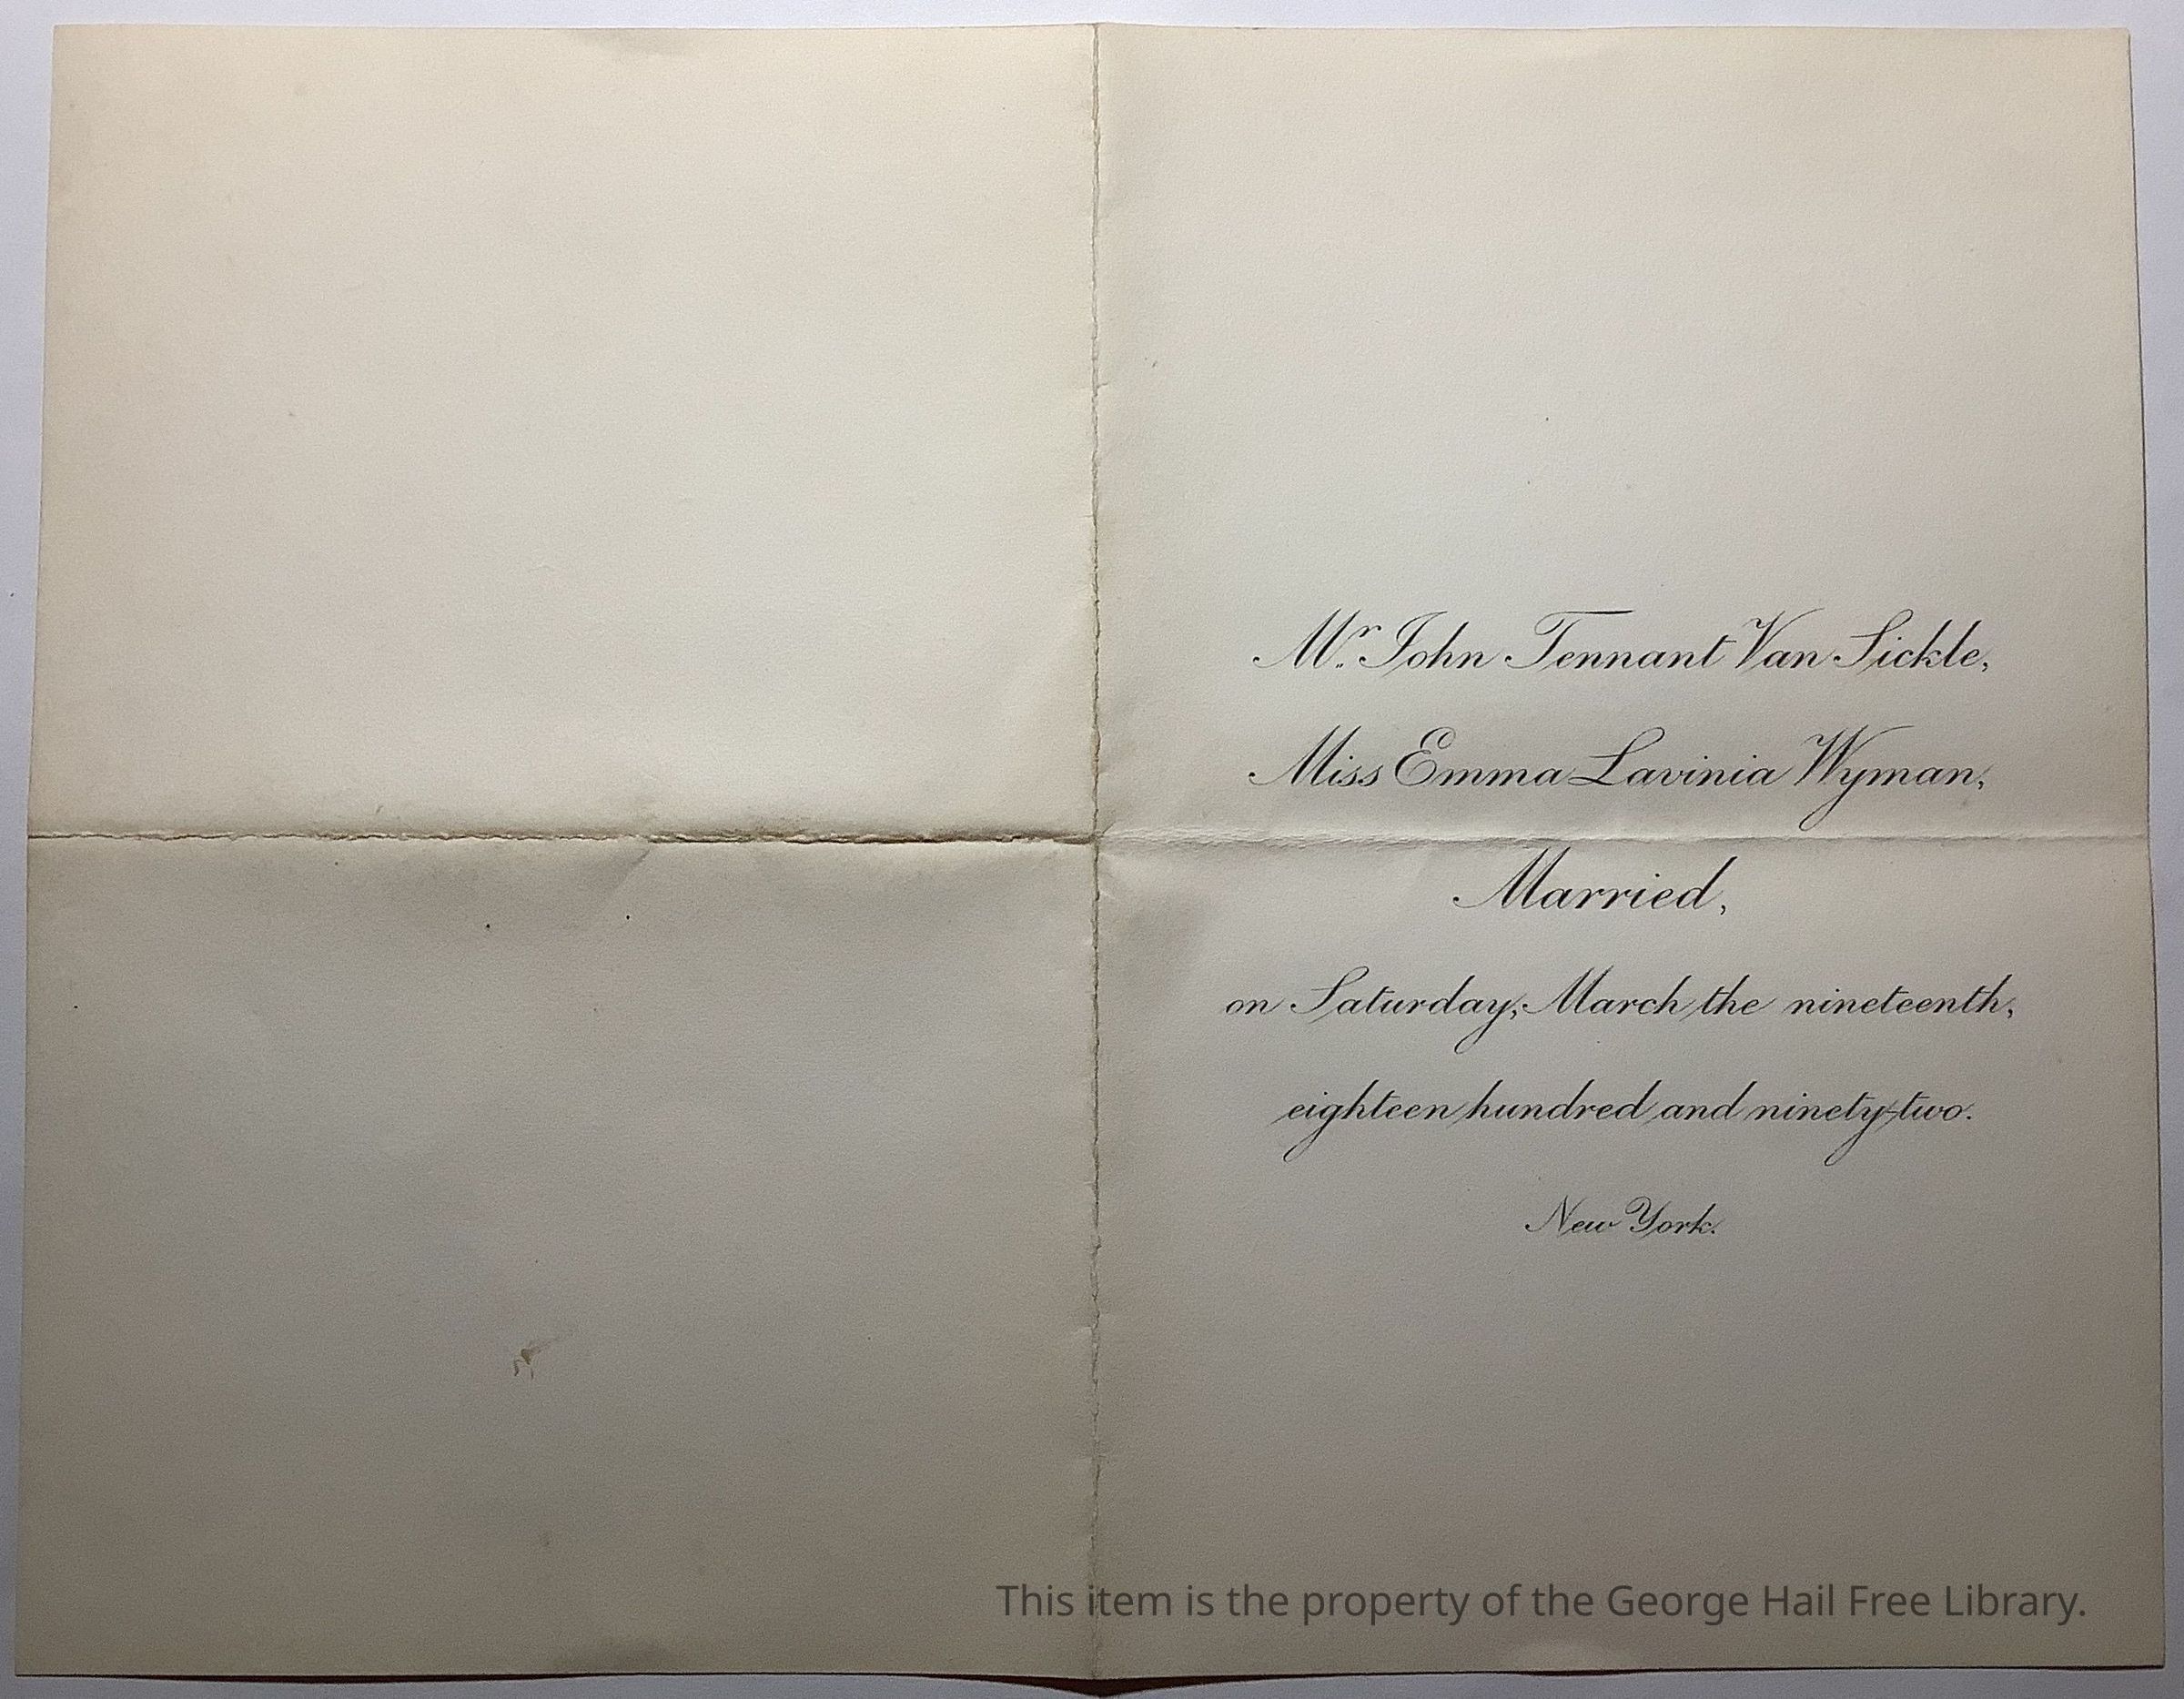 Mr. John Tennant Van Sickle,
Miss Emma Lavinia Wyman,
Married,
on Saturday, March the nineteenth,
eighteen hundred and ninety-two.
New York.
This item is the property of the George Hail Free Library.